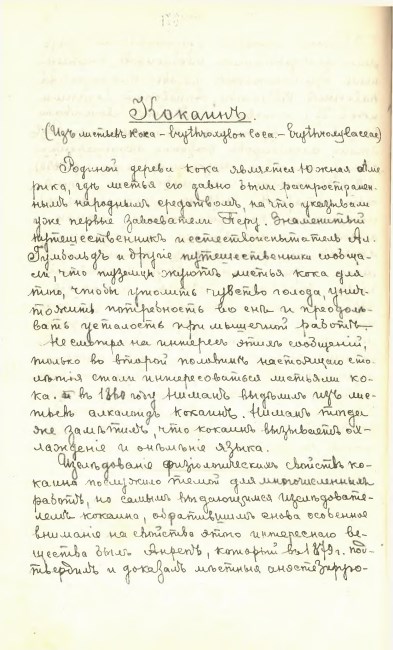 Кокаинъ.
(Изъ листьевъ Кока – Erythroxylon Coca – Erythroxylaceae)
Родиной дерева кока является Южная Аме-
рика, гдѣ листья его давно были распространен-
нымъ народнымъ средствомъ, на что указывали
уже первые завоеватели Перу. Знаменитый
путешественникъ и естествоиспытатель Ал.
Гумбольдъ и другіе путешественники сообща-
ли, что туземцы жуютъ листья кока для
того, чтобы утолить чувство голода, унич-
тожить потребность во снѣ и преодолѣ-
вать усталость при мышечной работѣ.
Не смотря на интересъ этихъ сообщеній,
только во второй половинѣ настоящаго сто-
лѣтія стали интересоваться листьями ко-
ка. въ 1860 году Ниманъ выдѣлилъ изъ ли-
стьевъ алкалоидъ Кокаинъ. Ниманъ тогда
же замѣтилъ, что кокаинъ вызываетъ ох-
лажденіе и онѣмѣніе языка.
Изслѣдованіе физіологическихъ свойствъ ко-
каина послужило темой для многочисленныхъ
работъ, но самымъ выдающимся изслѣдовате-
лемъ кокаина, обратившимъ снова особенное
вниманіе на свойства этого интереснаго ве-
щества былъ Анрепъ, который въ 1879 г. под-
твердилъ и доказалъ мѣстныя анэстезирую-